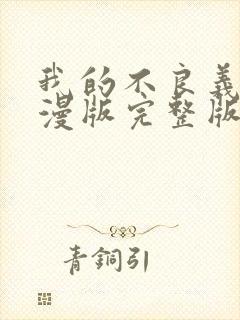 我的不良義
漫版完整版
青銅引